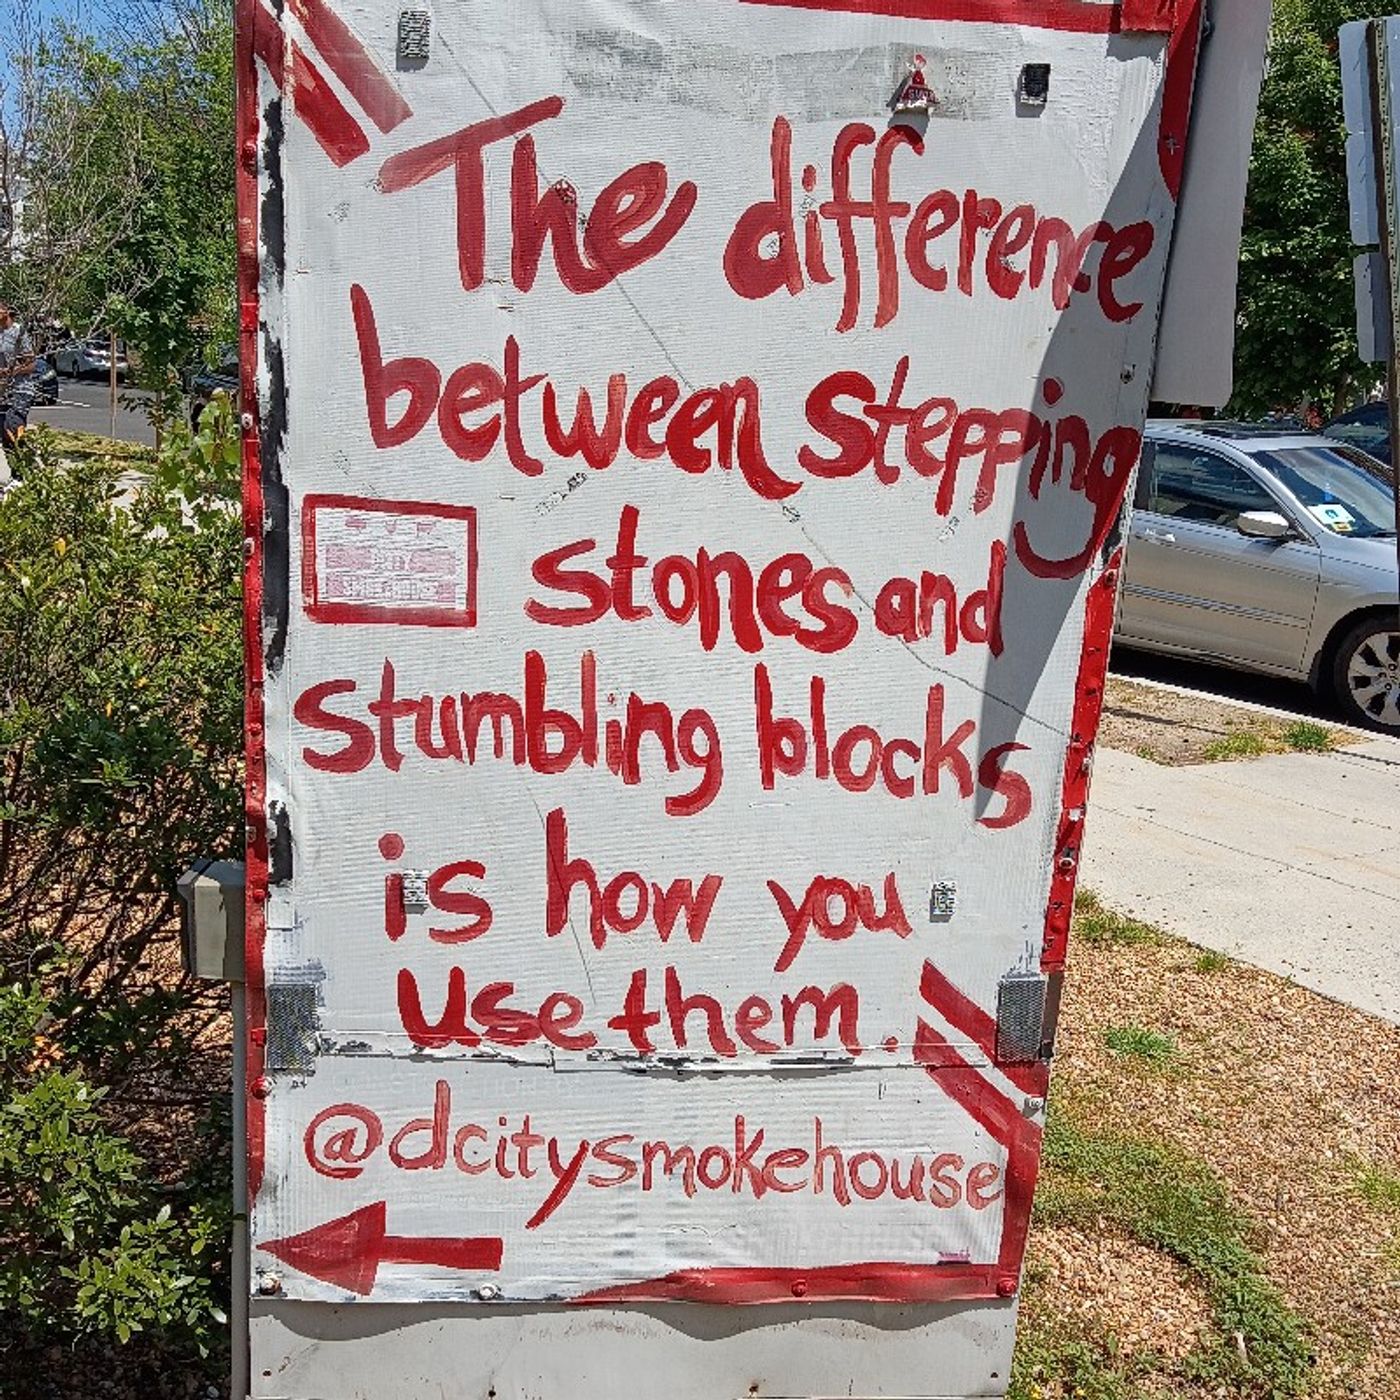 The difference
between stepping
stones and
stumbling blocks
is how you
use them.
@dcitysmokehouse